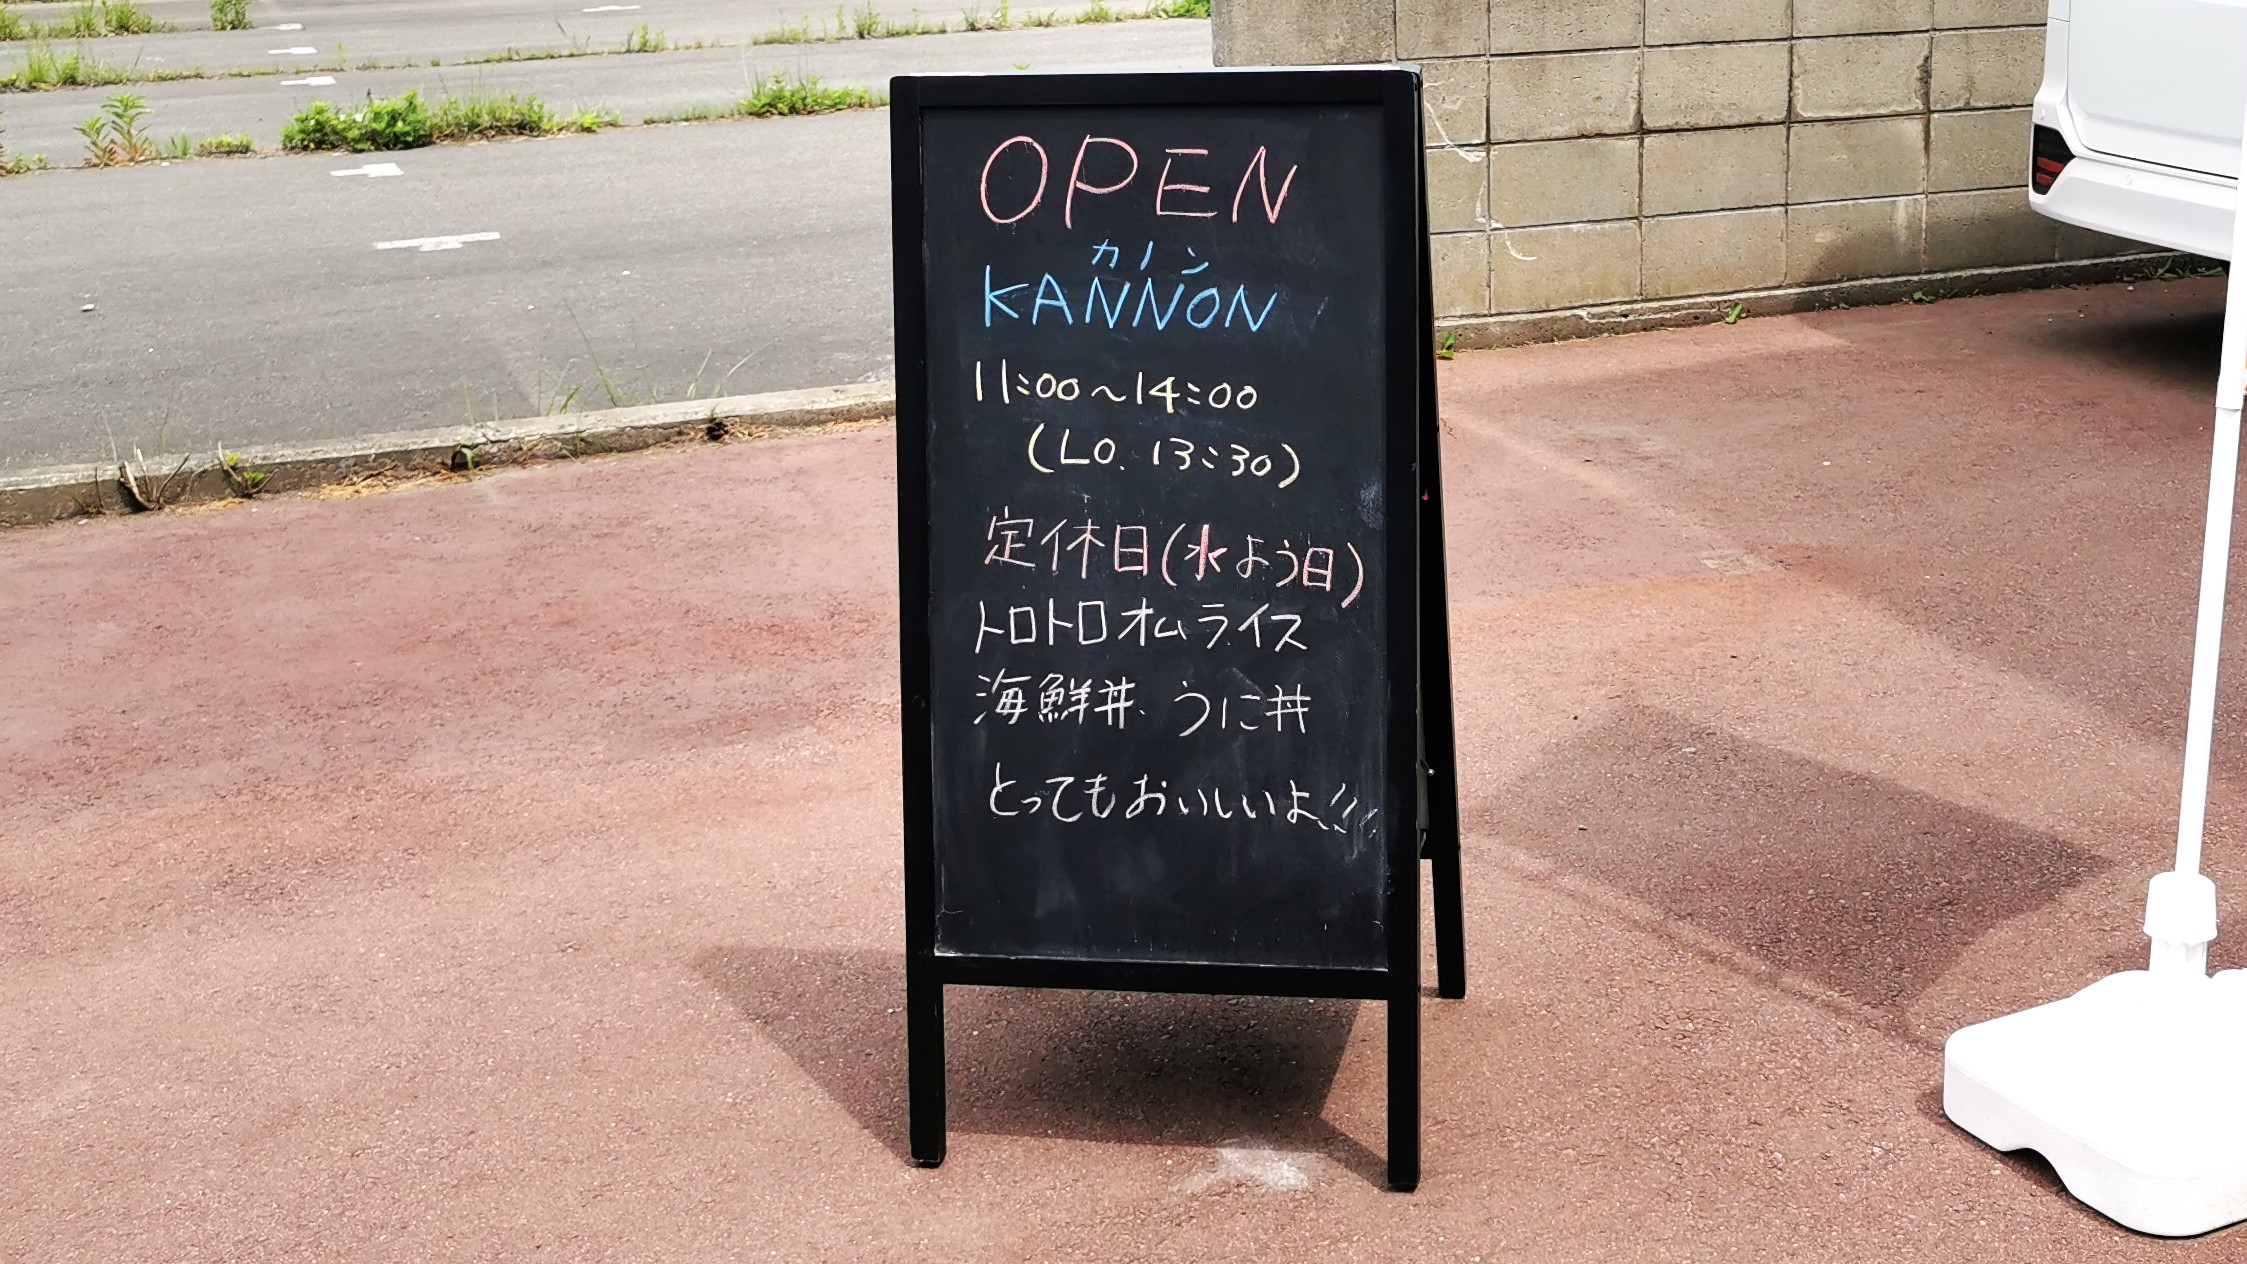 OPEN
カノン
KANNON
11:00～14:00
(LO. 13:30)
定休日(水よう日)
トロトロオムライス
海鮮丼、うに丼
とってもおいしいよ!!